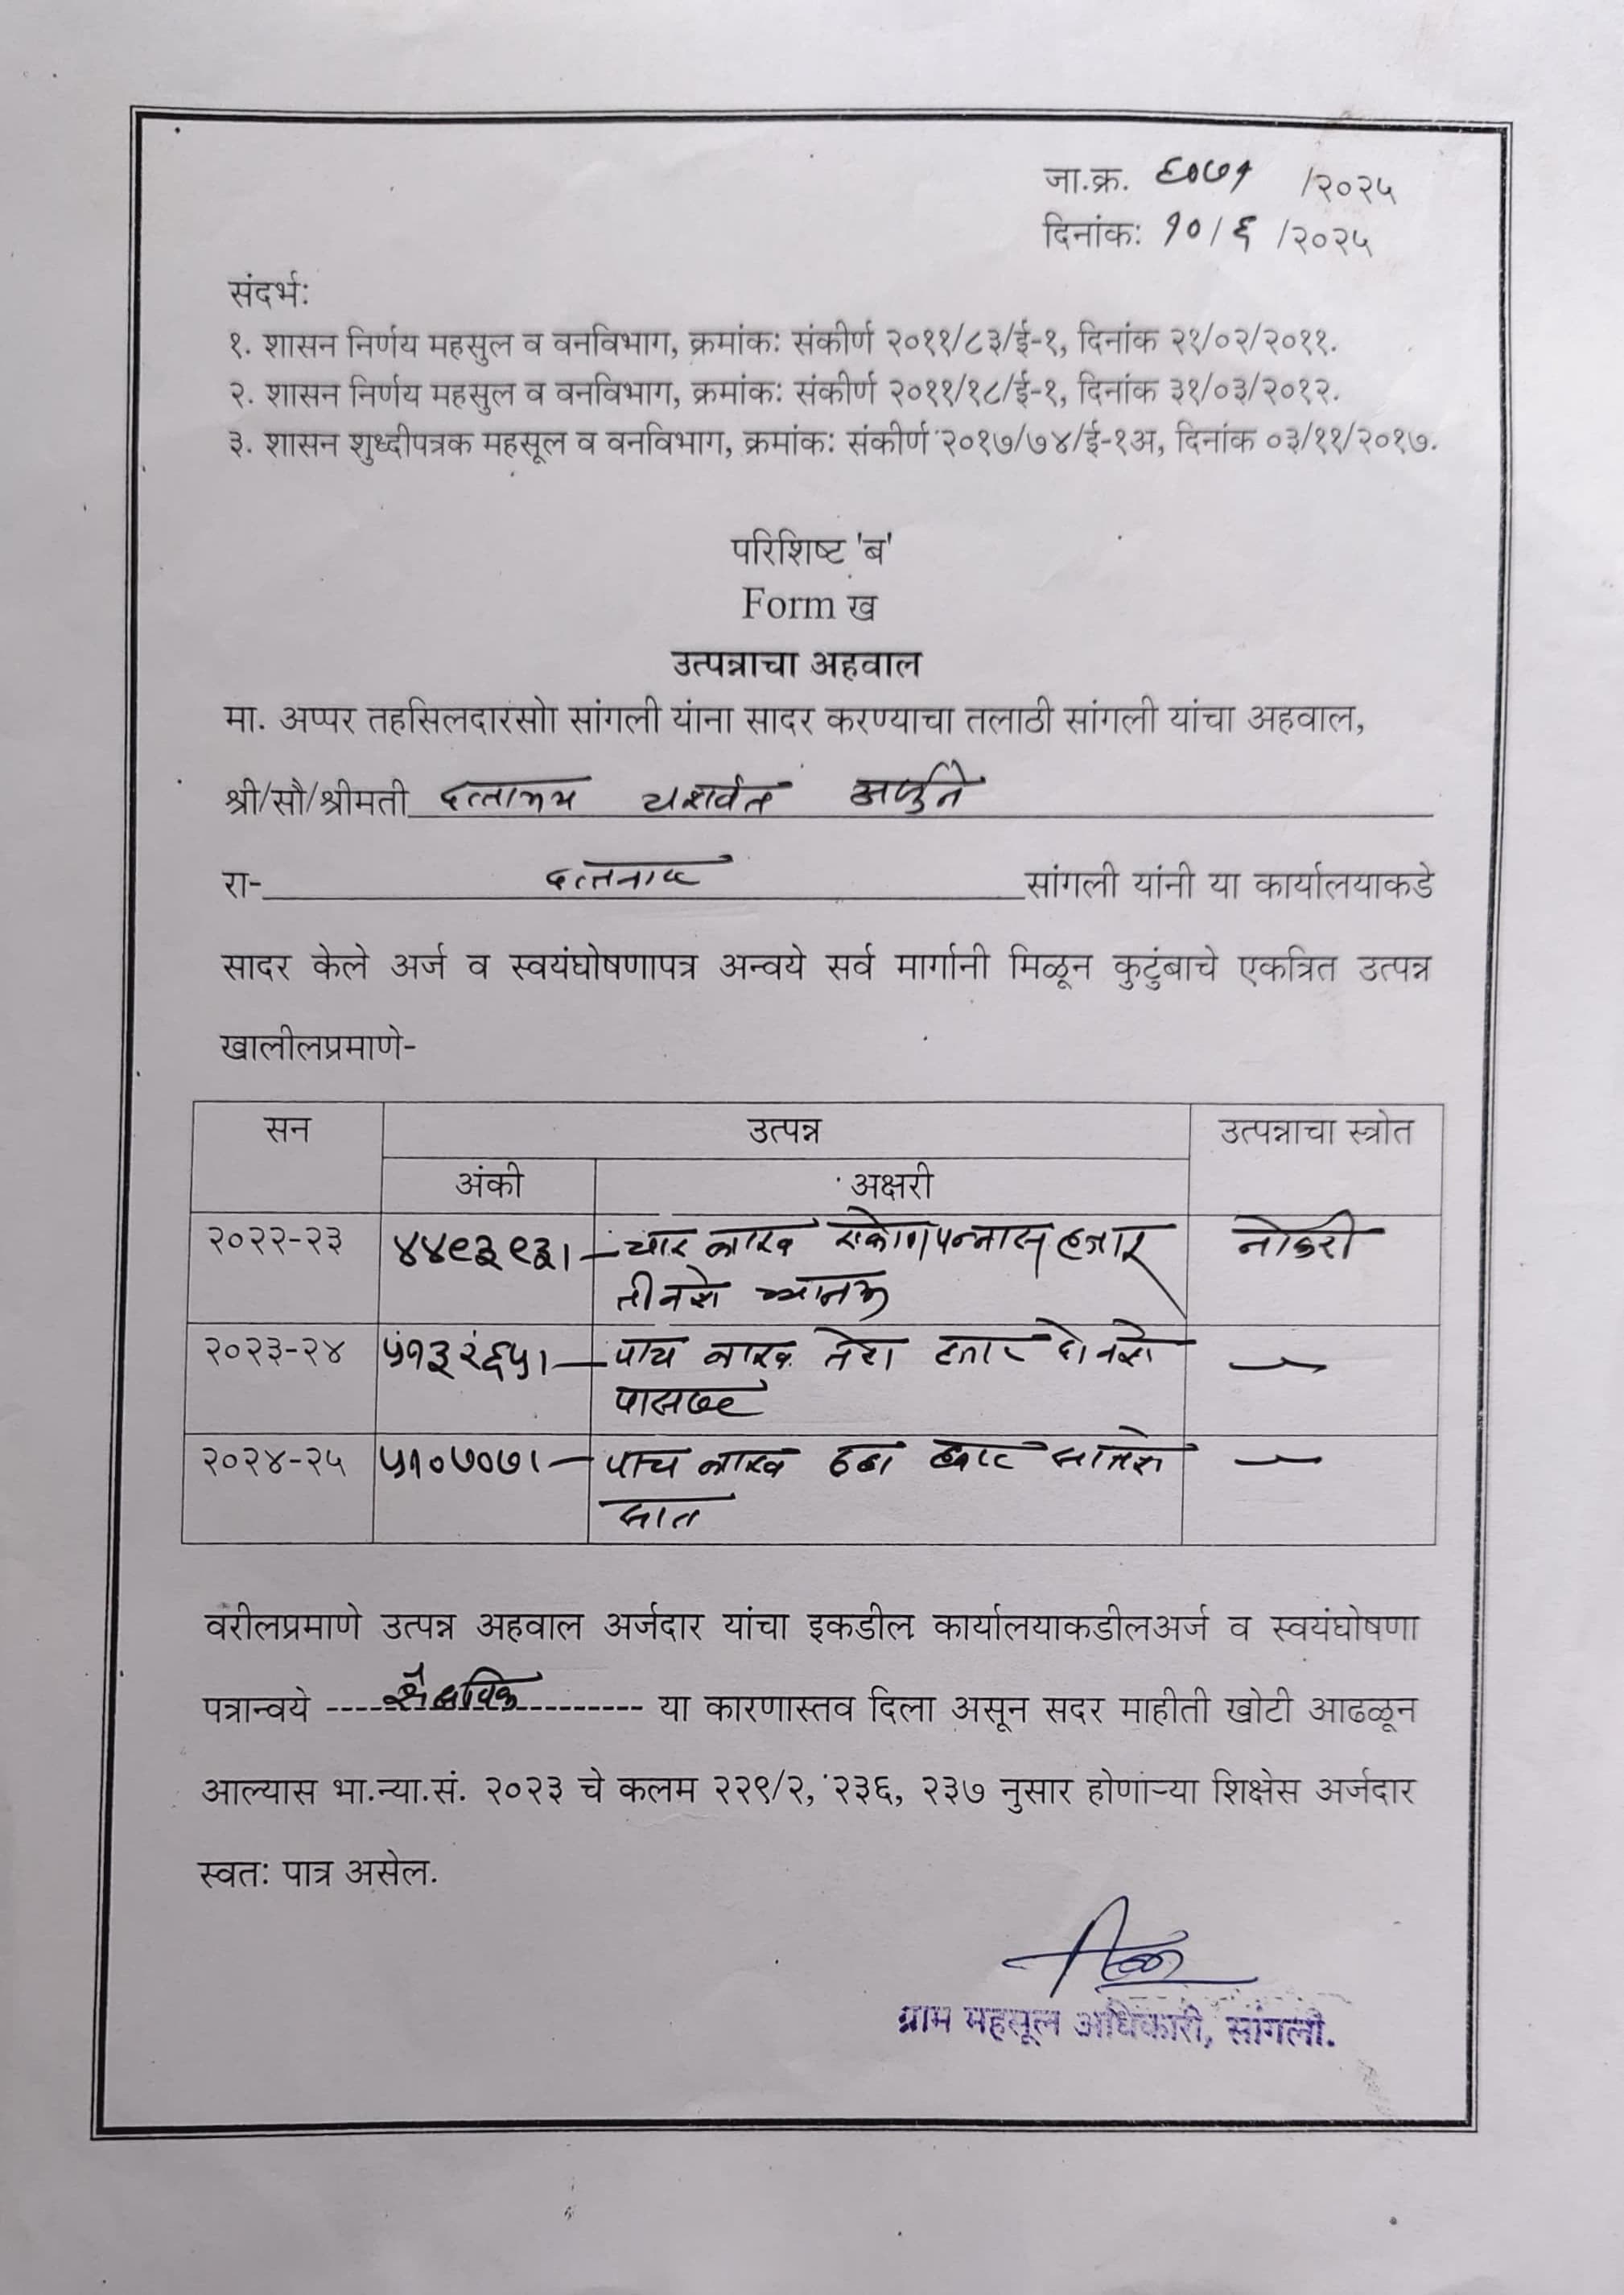 जा.क्र. ६०७१ /२०२५
दिनांक: १०/६ /२०२५
संदर्भ:
१. शासन निर्णय महसुल व वनविभाग, क्रमांक: संकीर्ण २०११/८३/ई-१, दिनांक २१/०२/२०११.
२. शासन निर्णय महसुल व वनविभाग, क्रमांक: संकीर्ण २०११/१८/ई-१, दिनांक ३१/०३/२०१२.
३. शासन शुध्दीपत्रक महसूल व वनविभाग, क्रमांक: संकीर्ण २०१७/७४/ई-१अ, दिनांक ०३/११/२०१७.
परिशिष्ट 'ब'
Form ख
उत्पन्नाचा अहवाल
मा. अप्पर तहसिलदारसाो सांगली यांना सादर करण्याचा तलाठी सांगली यांचा अहवाल,
श्री/सौ/श्रीमती दत्तात्रय यशवंत
रा- सांगली यांनी या कार्यालयाकडे
सादर केले अर्ज व स्वयंघोषणापत्र अन्वये सर्व मार्गानी मिळून कुटुंबाचे एकत्रित उत्पन्न
खालीलप्रमाणे-
सन उत्पन्न उत्पन्नाचा स्त्रोत
अंकी अक्षरी
२०२२-२३ ४४९३९३/- चार लाख एकोणपन्नास हजार नोकरी
तीनशे त्र्यानव
२०२३-२४ ५१३२६५/- पाच लाख तेरा हजार दोनशे
पासष्ट
२०२४-२५ ५१०७०७/- पाच लाख दहा हजार सातशे
सात
वरीलप्रमाणे उत्पन्न अहवाल अर्जदार यांचा इकडील कार्यालयाकडीलअर्ज व स्वयंघोषणा
पत्रान्वये ----शैक्षणिक---- या कारणास्तव दिला असून सदर माहीती खोटी आढळून
आल्यास भा.न्या.सं. २०२३ चे कलम २२९/२, २३६, २३७ नुसार होणाऱ्या शिक्षेस अर्जदार
स्वत: पात्र असेल.
ग्राम महसूल अधिकारी, सांगली.